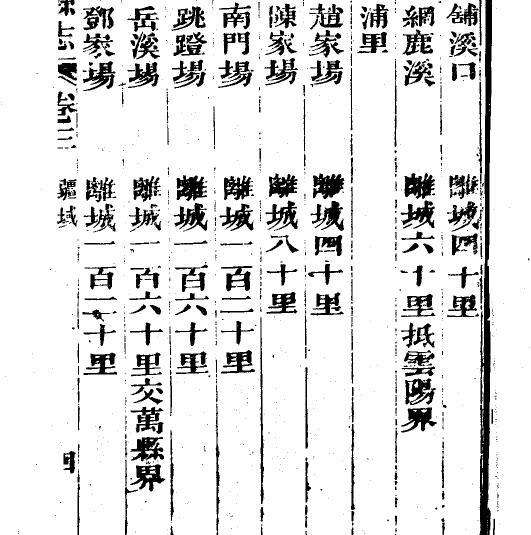 舖溪口 離城四十里
網鹿溪 離城六十里抵雲陽界
浦里
趙家場 離城四十里
陳家場 離城八十里
南門場 離城一百二十里
跳蹬場 離城一百六十里
岳溪場 離城一百六十里交萬縣界
鄧家場 離城一百十里
志 卷三 疆域 四